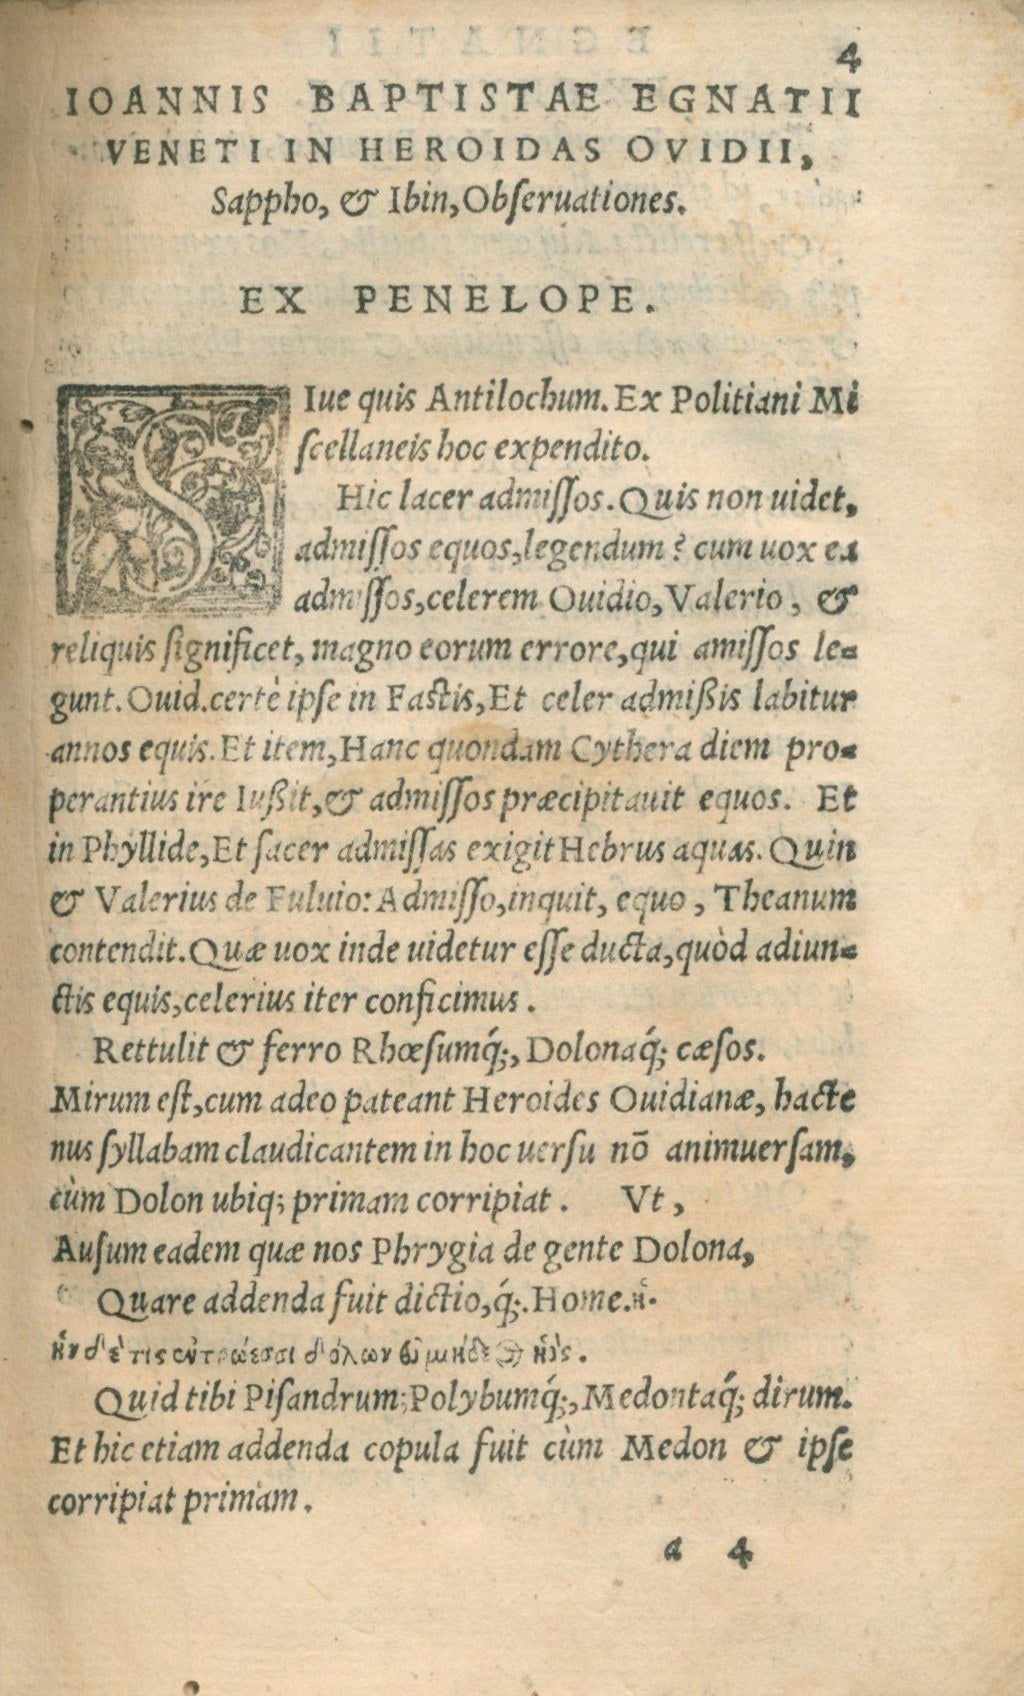 4
IOANNIS BAPTISTAE EGNATII
VENETI IN HEROIDAS OVIDII,
Sappho, & Ibin, Obſeruationes.
EX PENELOPE.
SIue quis Antilochum. Ex Politiani Mi
ſcellaneis hoc expendito.
Hic lacer admiſſos. Quis non uidet,
admiſſos equos, legendum? cum uox ea
admiſſos, celerem Ouidio, Valerio, &
reliquis ſignificet, magno eorum errore, qui amiſſos le-
gunt. Ouid. certè ipſe in Faſtis, Et celer admißis labitur
annos equis. Et item, Hanc quondam Cythera diem pro-
perantius ire Iußit, & admiſſos præcipitauit equos. Et
in Phyllide, Et ſacer admiſſas exigit Hebrus aquas. Quin
& Valerius de Fuluio: Admiſſo, inquit, equo, Theanum
contendit. Quæ uox inde uidetur eſſe ducta, quòd adiun-
ctis equis, celerius iter conficimus.
Rettulit & ferro Rhœſumq́;, Dolonaq́; cæſos.
Mirum eſt, cum adeo pateant Heroides Ouidianæ, hacte
nus ſyllabam claudicantem in hoc uerſu nō animuerſam,
cùm Dolon ubiq; primam corripiat. Vt,
Auſum eadem quæ nos Phrygia de gente Dolona,
Quare addenda fuit dictio, q́;. Home. κ̓.
ἦν δ'έ τις ἐν τρώεσσι δόλων
Quid tibi Piſandrum; Polybumq́;, Medontaq́; dirum.
Et hic etiam addenda copula fuit cùm Medon & ipſe
corripiat primam.
a 4